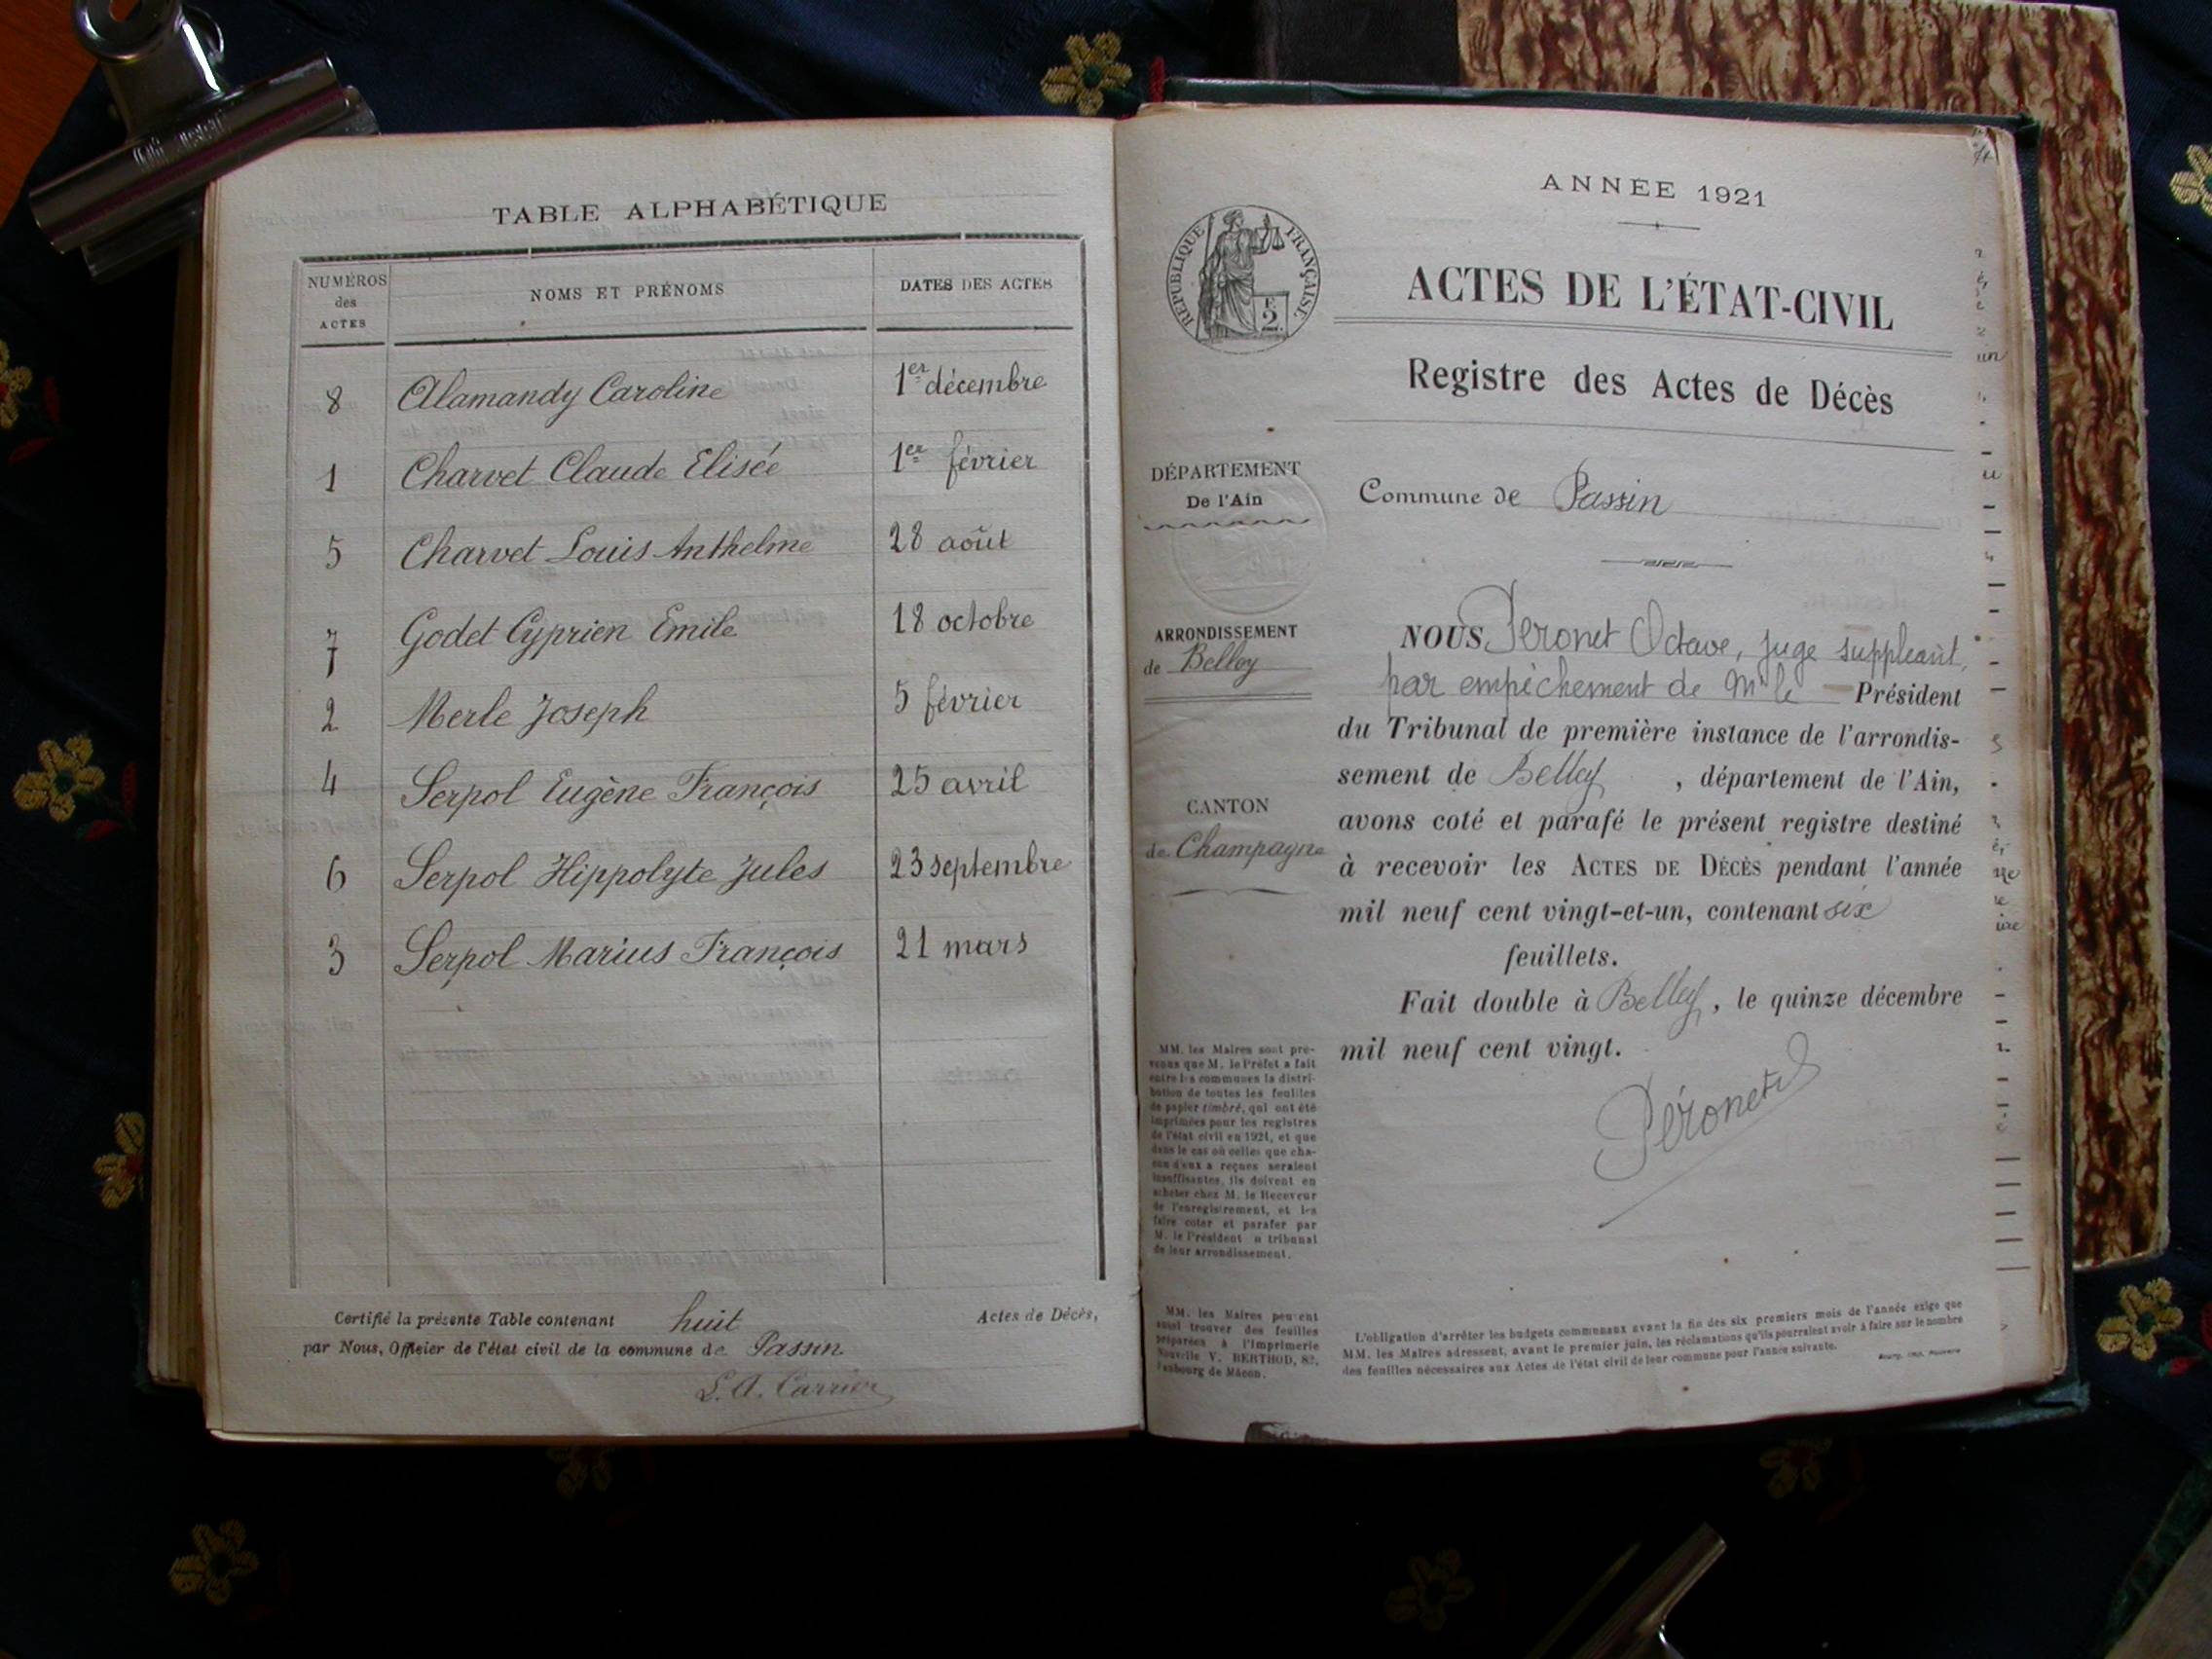 TABLE ALPHABÉTIQUE
NUMÉROS des ACTES | NOMS ET PRÉNOMS | DATES DES ACTES
8 | Alamandy Caroline | 1er décembre
1 | Charvet Claude Elisée | 1er février
5 | Charvet Louis Anthelme | 28 août
7 | Godet Cyprien Emile | 18 octobre
2 | Merle Joseph | 5 février
4 | Serpol Eugène François | 25 avril
6 | Serpol Hippolyte Jules | 23 septembre
3 | Serpol Marius François | 21 mars
Certifié la présente Table contenant huit Actes de Décès,
par Nous, Officier de l'état civil de la commune de Passin
L. A. Carrier
ANNÉE 1921
RÉPUBLIQUE FRANÇAISE
ACTES DE L'ÉTAT-CIVIL
Registre des Actes de Décès
DÉPARTEMENT
De l'Ain
ARRONDISSEMENT
de Belley
CANTON
de Champagne
MM. les Maires sont pré-
venus que M. le Préfet a fait
entre les communes la distri-
bution de toutes les feuilles
de papier timbré, qui ont été
imprimées pour les registres
de l'état civil en 1921, et que
dans le cas où celles que cha-
cun d'eux a reçues seraient
insuffisantes, ils doivent en
acheter chez M. le Receveur
de l'enregistrement, et les
faire coter et parafer par
M. le Président tribunal
de leur arrondissement.
MM. les Maires peuvent
aussi trouver des feuilles
préparées à l'Imprimerie
Nouvelle V. BERTHOD, 82,
Faubourg de Mâcon.
Commune de Passin
NOUS Péronet Octave, juge suppléant,
par empêchement de Mr le Président
du Tribunal de première instance de l'arrondis-
sement de Belley , département de l'Ain,
avons coté et parafé le présent registre destiné
à recevoir les ACTES DE DÉCÈS pendant l'année
mil neuf cent vingt-et-un, contenant six
feuillets.
Fait double à Belley, le quinze décembre
mil neuf cent vingt.
Péronet
L'obligation d'arrêter les budgets communaux avant la fin des six premiers mois de l'année exige que
MM. les Maires adressent, avant le premier juin, les réclamations qu'ils pourraient avoir à faire sur le nombre
des feuilles nécessaires aux Actes de l'état civil de leur commune pour l'année suivante.